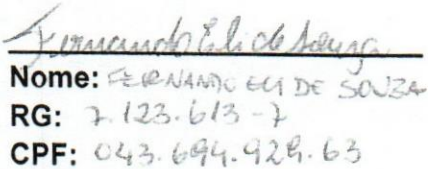 Fernando Eli de Souza
Nome: FERNANDO ELI DE SOUZA
RG: 7.123.613-7
CPF: 043.694.929.63